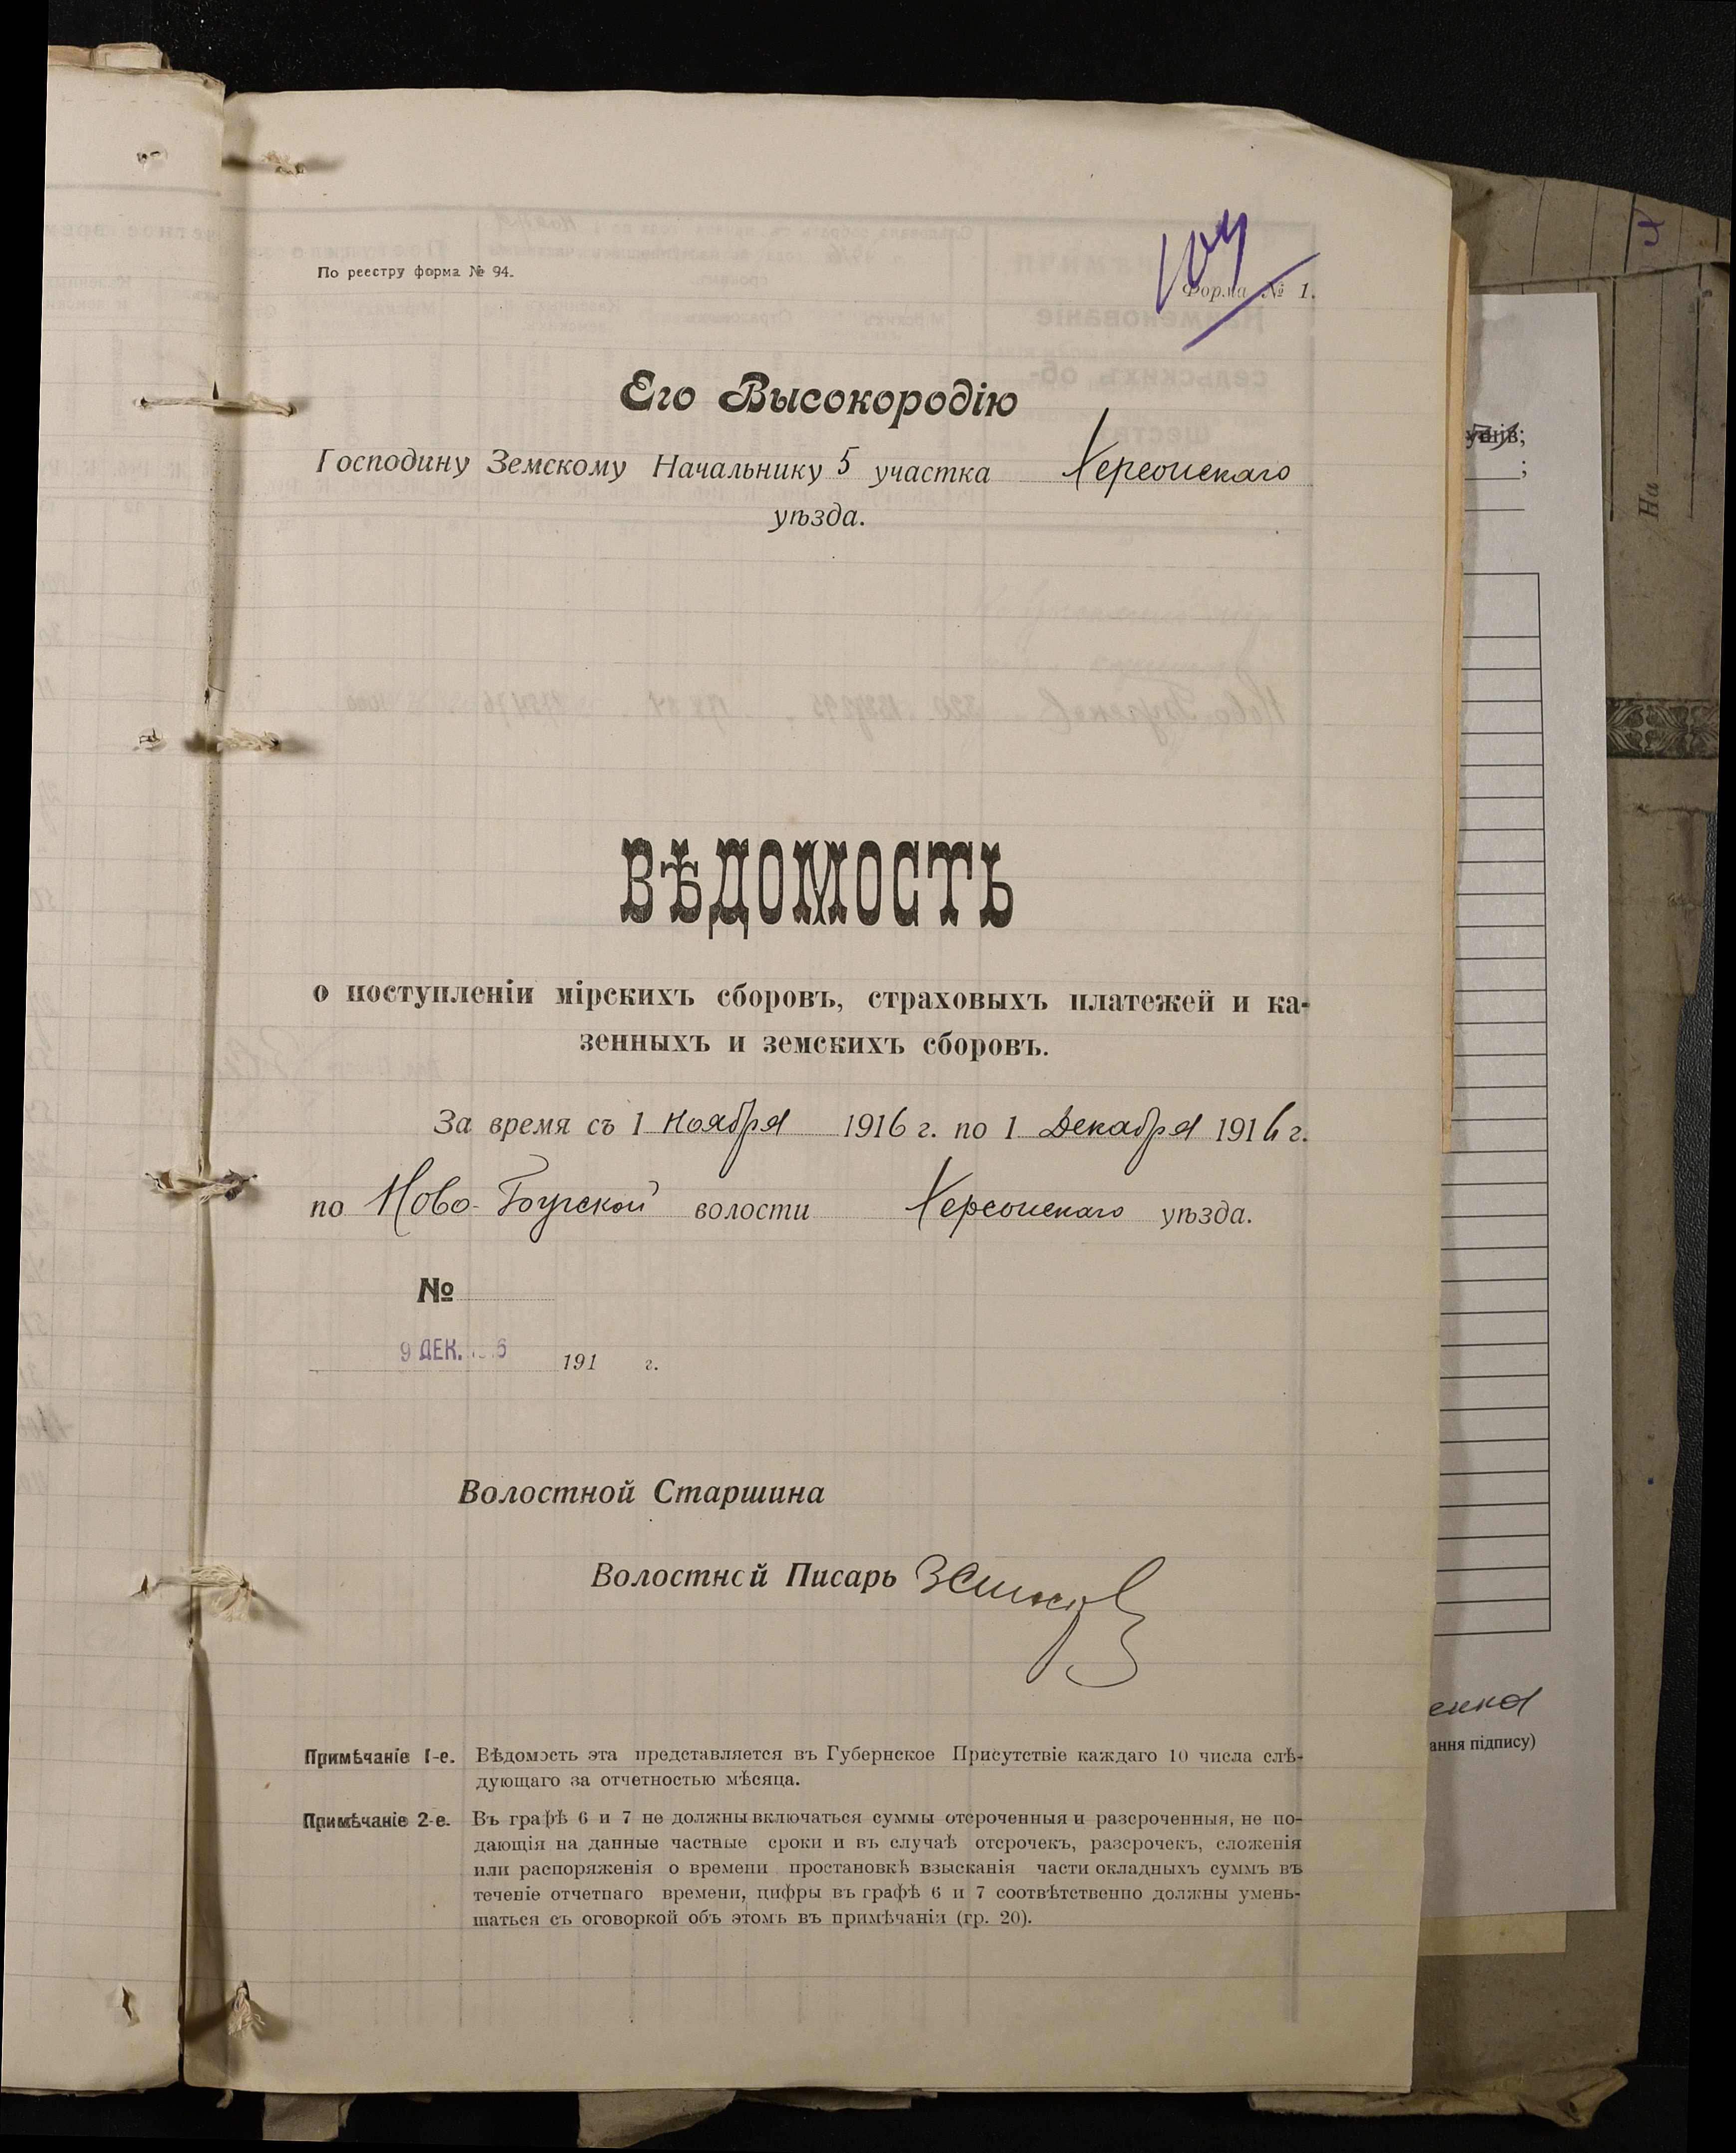 По реестру форма № 94.
Форма № 1.
Его Высокородію
Господину Земскому Начальнику 5 участка Херсонскаго
уѣзда.
ВѢДОМОСТЬ
о поступленіи мірскихъ сборовъ, страховыхъ платежей и ка-
зенныхъ и земскихъ сборовъ.
За время съ 1 Ноября 1916 г. по 1 Декабря 1916 г.
по Ново-Бугской волости Херсонскаго уѣзда.
№
9 ДЕК. 1916 191 г.
Волостной Старшина
Волостной Писарь
Примѣчаніе 1-е. Вѣдомость эта представляется въ Губернское Присутствіе каждаго 10 числа слѣ-
дующаго за отчетностью мѣсяца.
Примѣчаніе 2-е. Въ графѣ 6 и 7 не должны включаться суммы отсроченныя и разсроченныя, не по-
дающія на данные частные сроки и въ случаѣ отсрочекъ, разсрочекъ, сложенія
или распоряженія о времени простановкѣ взысканія части окладныхъ суммъ въ
теченіе отчетнаго времени, цифры въ графѣ 6 и 7 соотвѣтственно должны умень-
шаться съ оговоркой объ этомъ въ примѣчаніи (гр. 20).
На
ання підпису)